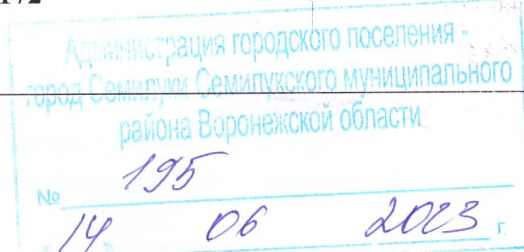 172
Администрация городского поселения -
город Семилуки Семилукского муниципального
района Воронежской области
№ 195
"14" 06 2023 г.